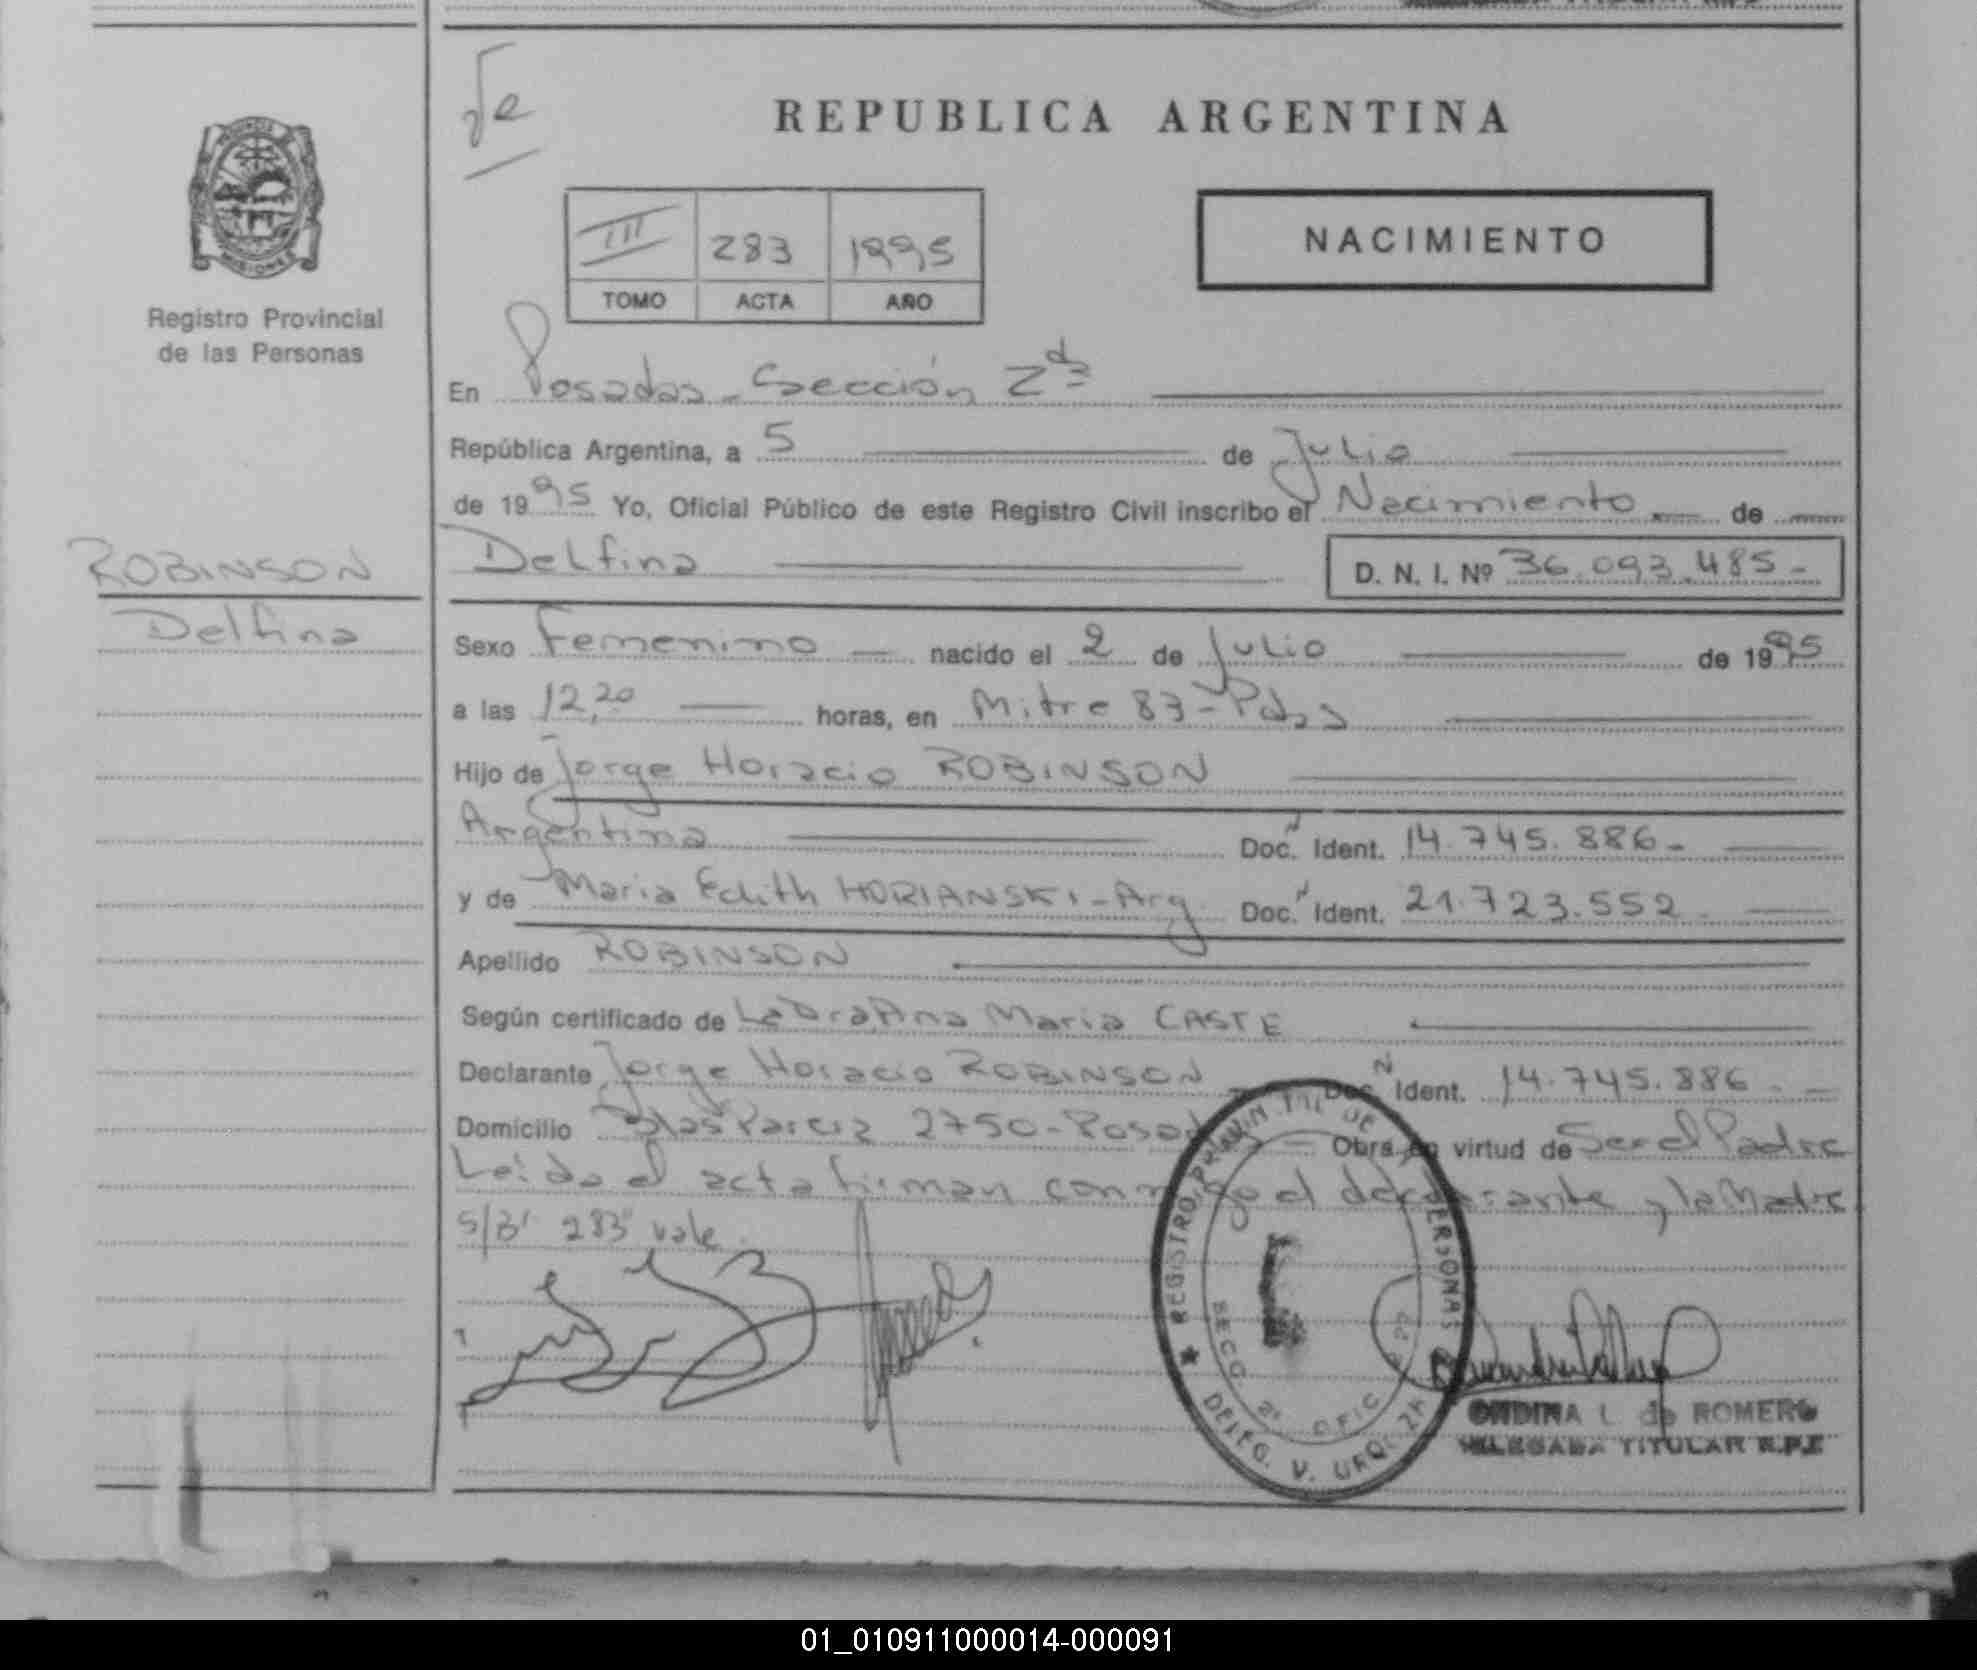 REPUBLICA ARGENTINA
PROVINCIA
MISIONES
Registro Provincial
de las Personas
III 283 1995
TOMO ACTA AÑO
NACIMIENTO
En Posadas - Sección 2da
República Argentina, a 5 de Julio
de 1995 Yo, Oficial Público de este Registro Civil inscribo el Nacimiento de
Delfina D. N. I. Nº 36.093.485-
ROBINSON
Delfina
Sexo Femenino nacido el 2 de Julio de 1995
a las 12,20 horas, en Mitre 83-Pdas
Hijo de Jorge Horacio ROBINSON
Argentina Doc. N Ident. 14.745.886-
y de Maria Edith HORIANSKI-Arg. Doc. N Ident. 21.723.552
Apellido ROBINSON
Según certificado de La Dra Ana Maria CASTE
Declarante Jorge Horacio ROBINSON Doc. N Ident. 14.745.886
Domicilio Blas Parera 2750-Posadas Obra en virtud de Ser el Padre
Leída el acta firman conmigo el declarante y la Madre
S/B' 283 vale.
REGISTRO PROVINCIAL DE PERSONAS
SECC. 2ª OFIC.
DELEG. V. URQUIZA
ONDINA L de ROMERO
DELEGADA TITULAR R.P.P
01_010911000014-000091